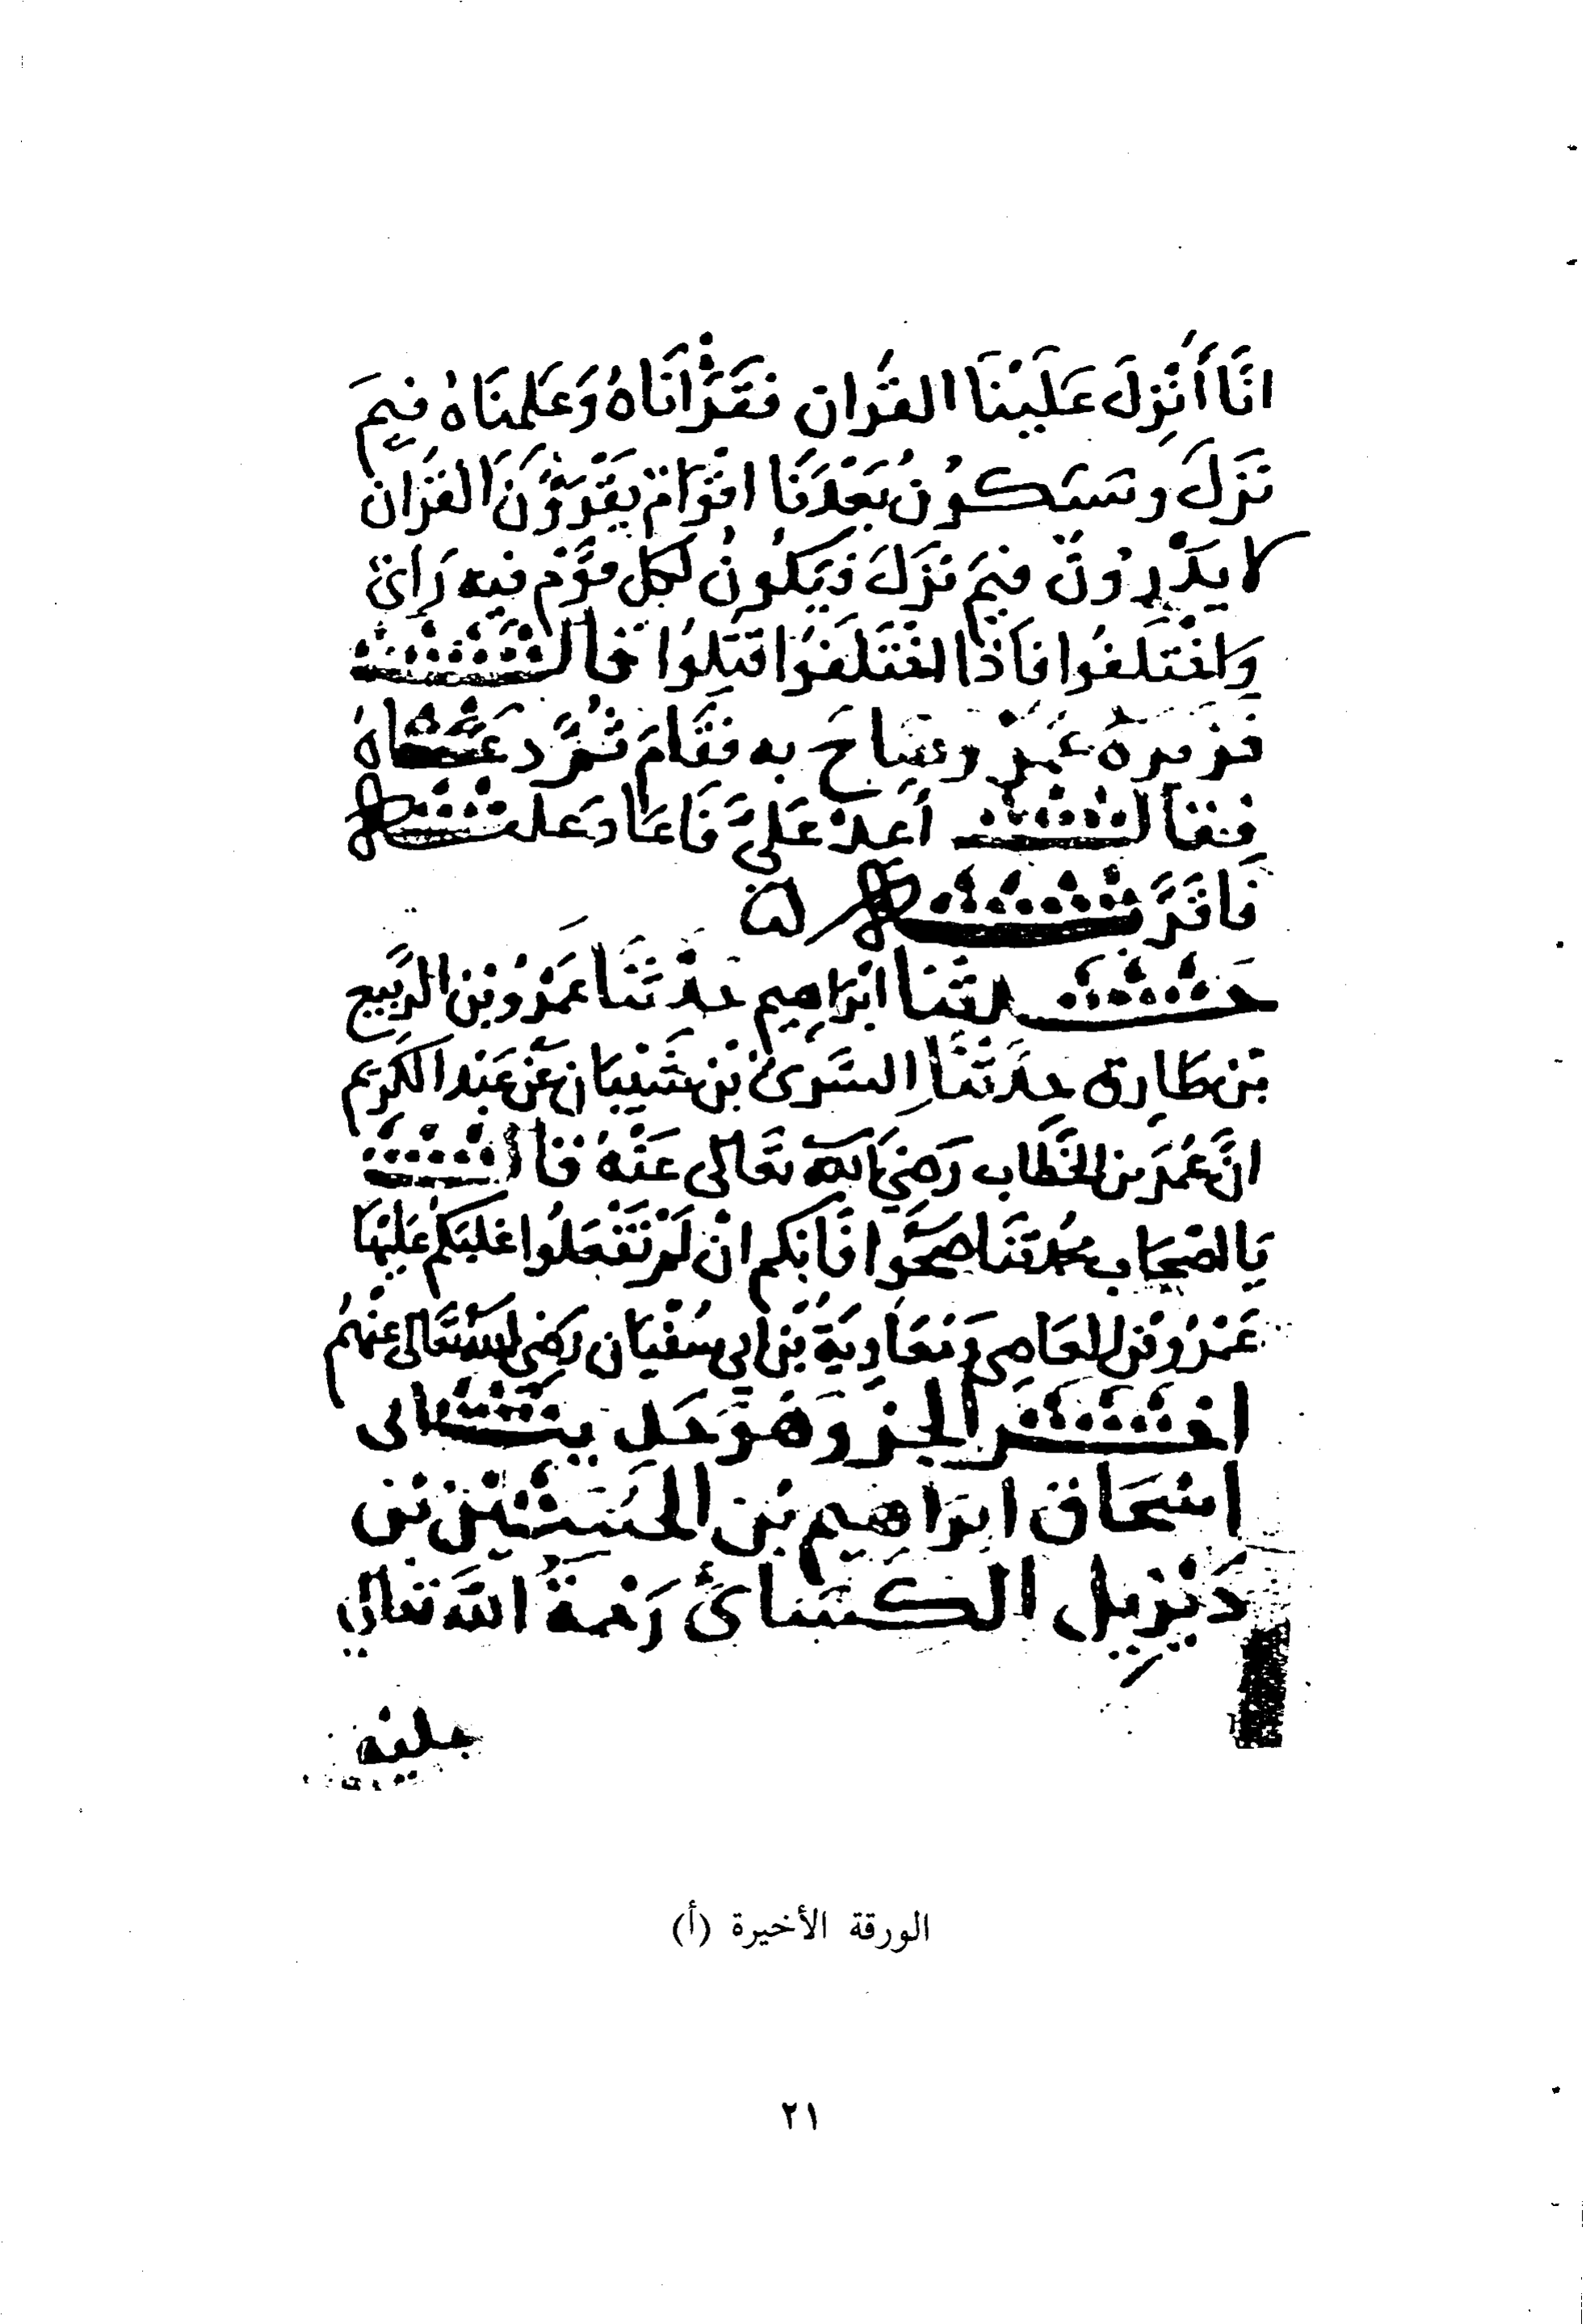 انَّا أُنْزِلَ عَلَيْنَا القُرَان فَقَرَأنَاهُ وَعَلمنَاهُ فِيمَ
نَزَلَ وستَكُونُ بَعْدَنَا اقْوَامٌ يَقْرَؤُنَ القُرَان
لا يَدْرِوُنَ فِيمَ نَزَلَ فَيَكُونُ لِكُلِ قَوْمٍ فِيهِ رَايٌ
وَاخْتَلَفُوا فَاذَا اخْتَلَفُوا قتَلُوا قال
فَزَبَرَهُ عُمَرُ وصَاحَ به فقَامَ ثُمَّ دعَاهُ
فقال أعِدْ عَلَيَّ فَاعَادَ عليه
فَاقَرَّ به ه
حَدثنا ابْرَاهِيم حَدثَنَا عَمْرُو بن الرَّبِيع
بْن طَارِق حَدثَنَا السَّرِيُّ بْن شَيْبَان عَنْ عَبْد الكَرِيم
انَّ عُمَرَ بن الخَطَّاب رَضِيَ الله تعَالى عَنْهُ قَال
يَا اصْحَاب مُحَمد تنَاصَحُوا فَانكم انْ لَمْ تَفْعَلُوا غَلَبَكُمْ عَلَيْهَا
عَمْرُو بْن العَاصِي وَمُعَاوِيَةُ بْن ابي سُفْيَان رَضِيَ الله تَعَالى عَنْهُم
اخر الجزَؤ وَهُوَ حَديث ابى
اسْحَاق ابْرَاهِيم بْن الحُسَيْن بْن
دَيْزِيل الكسَائى رَحْمَةُ الله تعالى
عليه
الورقة الأخيرة (أ)
٢١